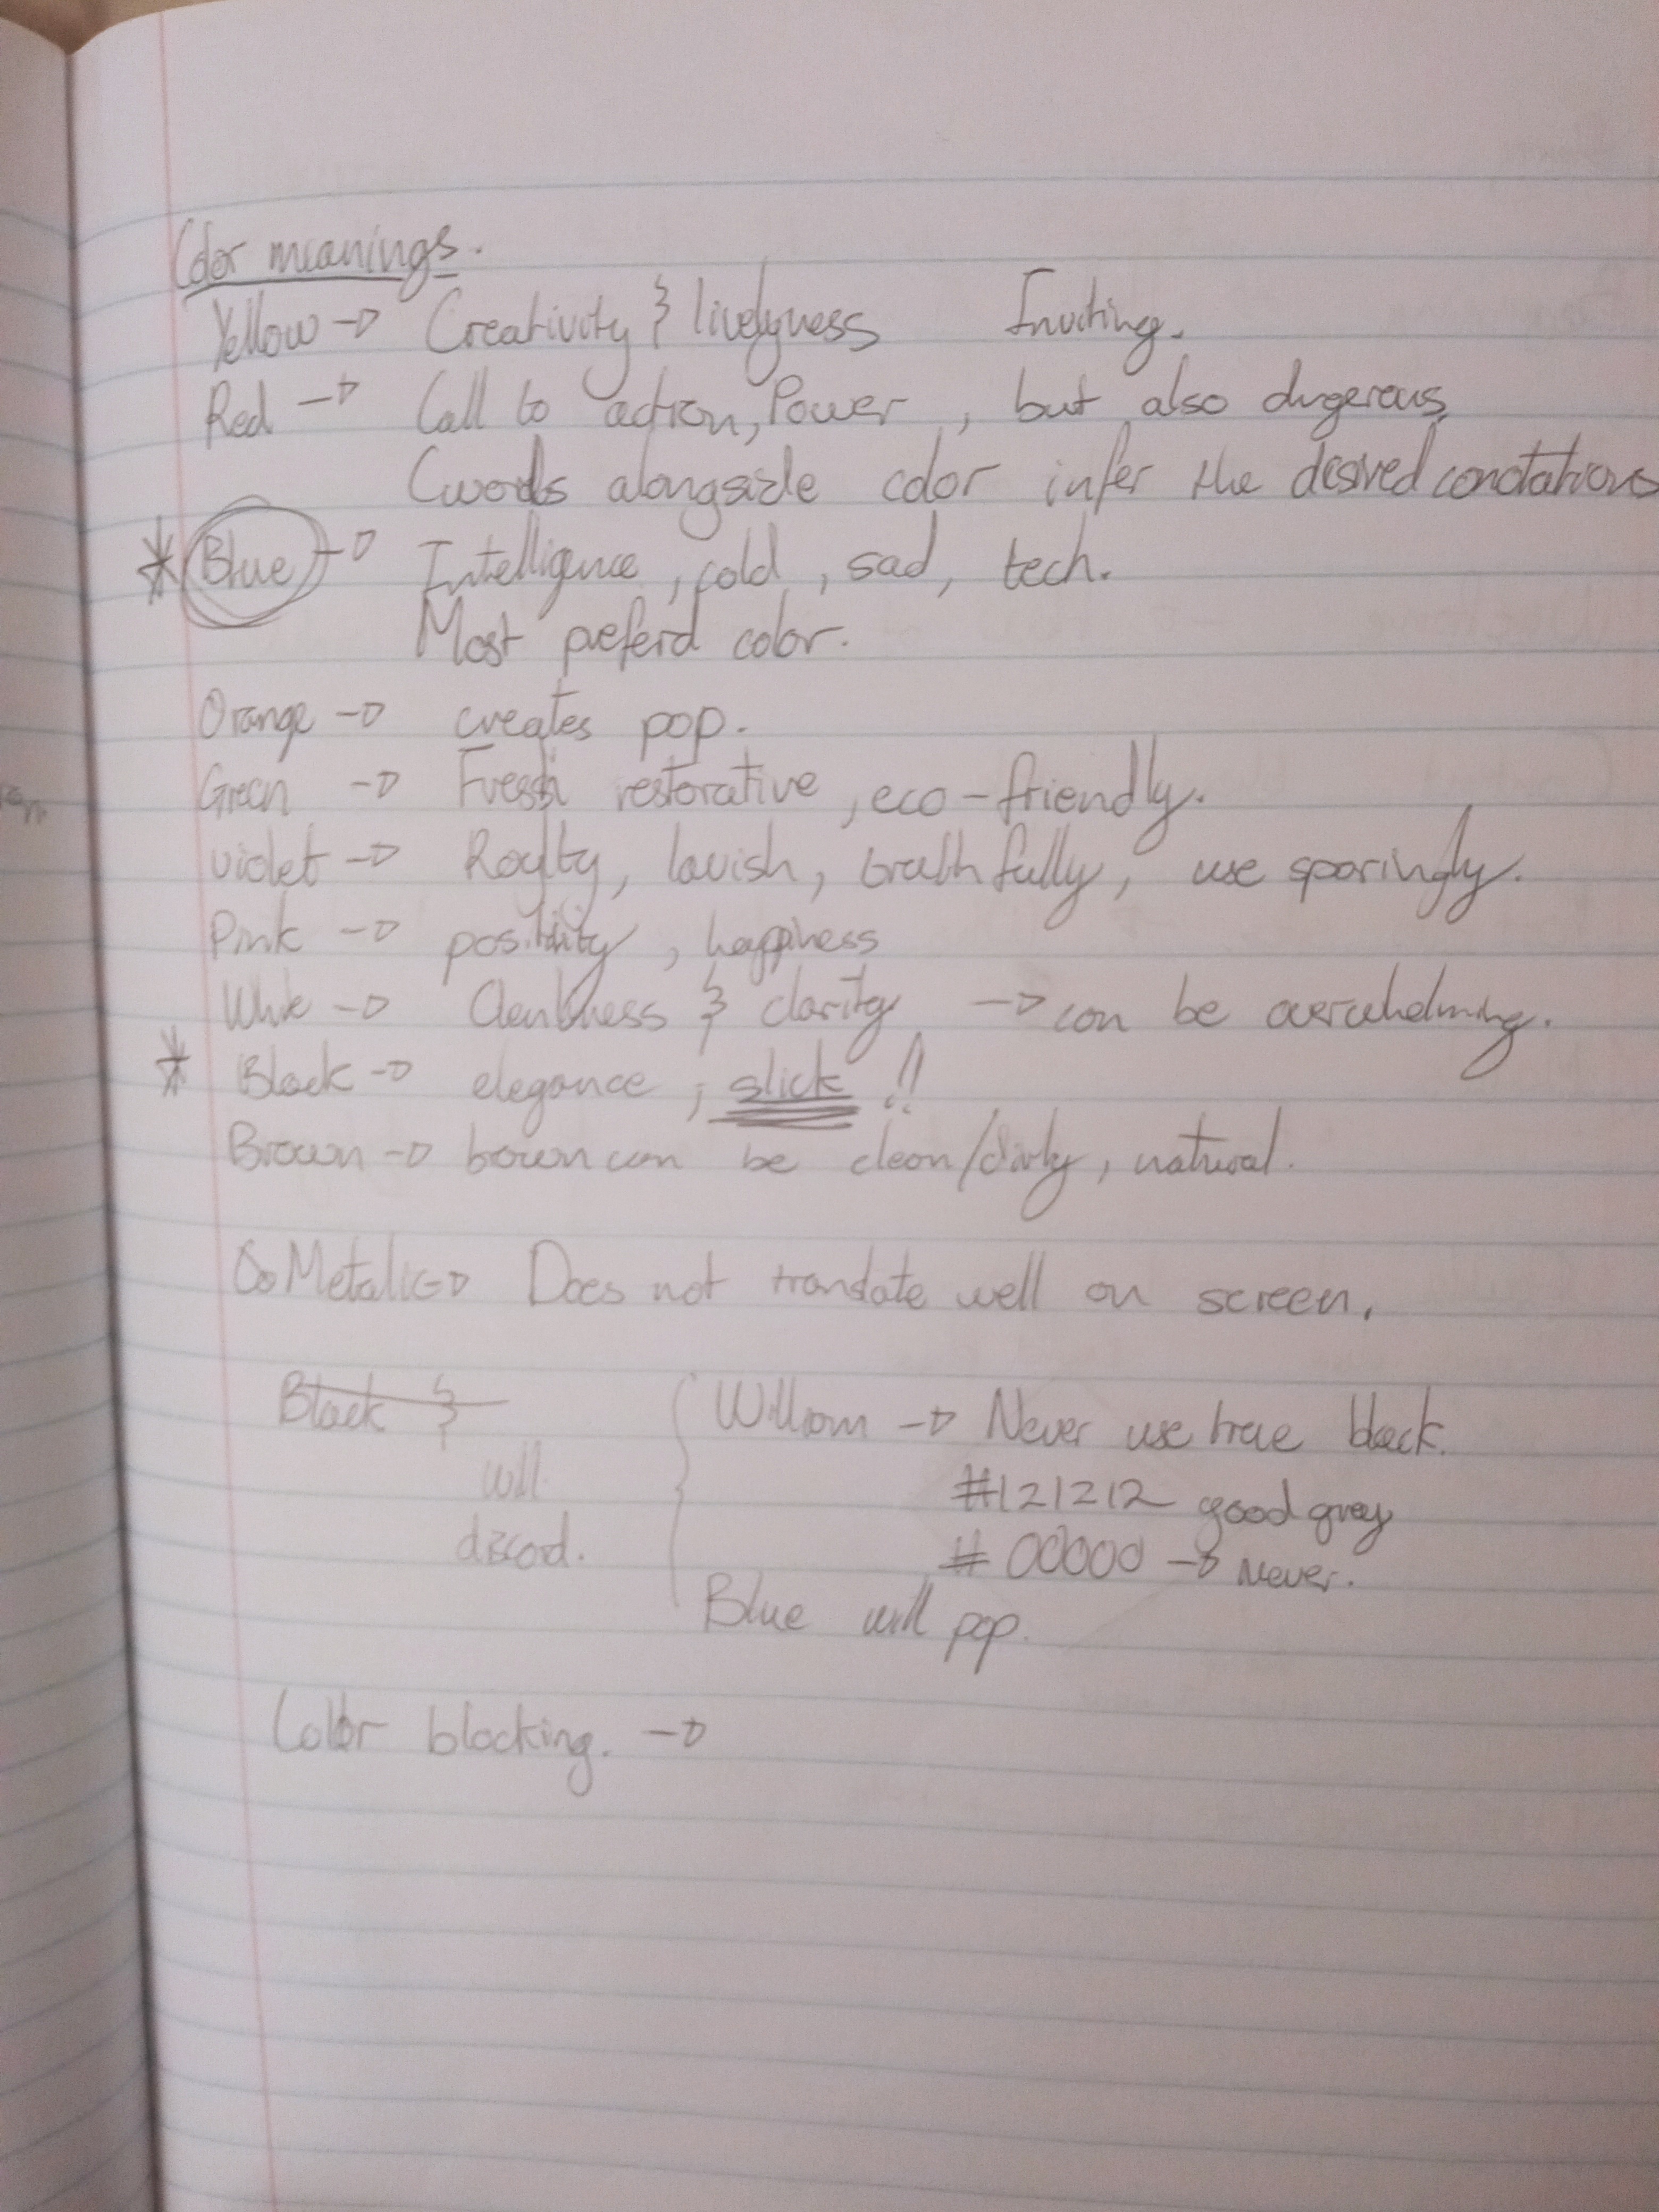 Color meanings.
Yellow → Creativity & livelyness Inviting.
Red → Call to action, Power, but also dangerous,
(words alongside color infer the desired conotations
* Blue → Intelligence, cold, sad, tech.
Most preferd color.
Orange → creates pop.
Green → Fresh restorative, eco-friendly.
violet → Roylty, lavish, truthfully, use sparingly.
Pink → positivity, happiness
White → Clenliness & clarity → can be overwhelming.
* Black → elegance, slick !!
Brown → brown can be clean/dirty, natural.
Metalic → Does not translate well on screen.
Black &
will
discord.
William → Never use true black.
#121212 good grey
# 00000 → Never.
Blue will pop.
Color blocking. →